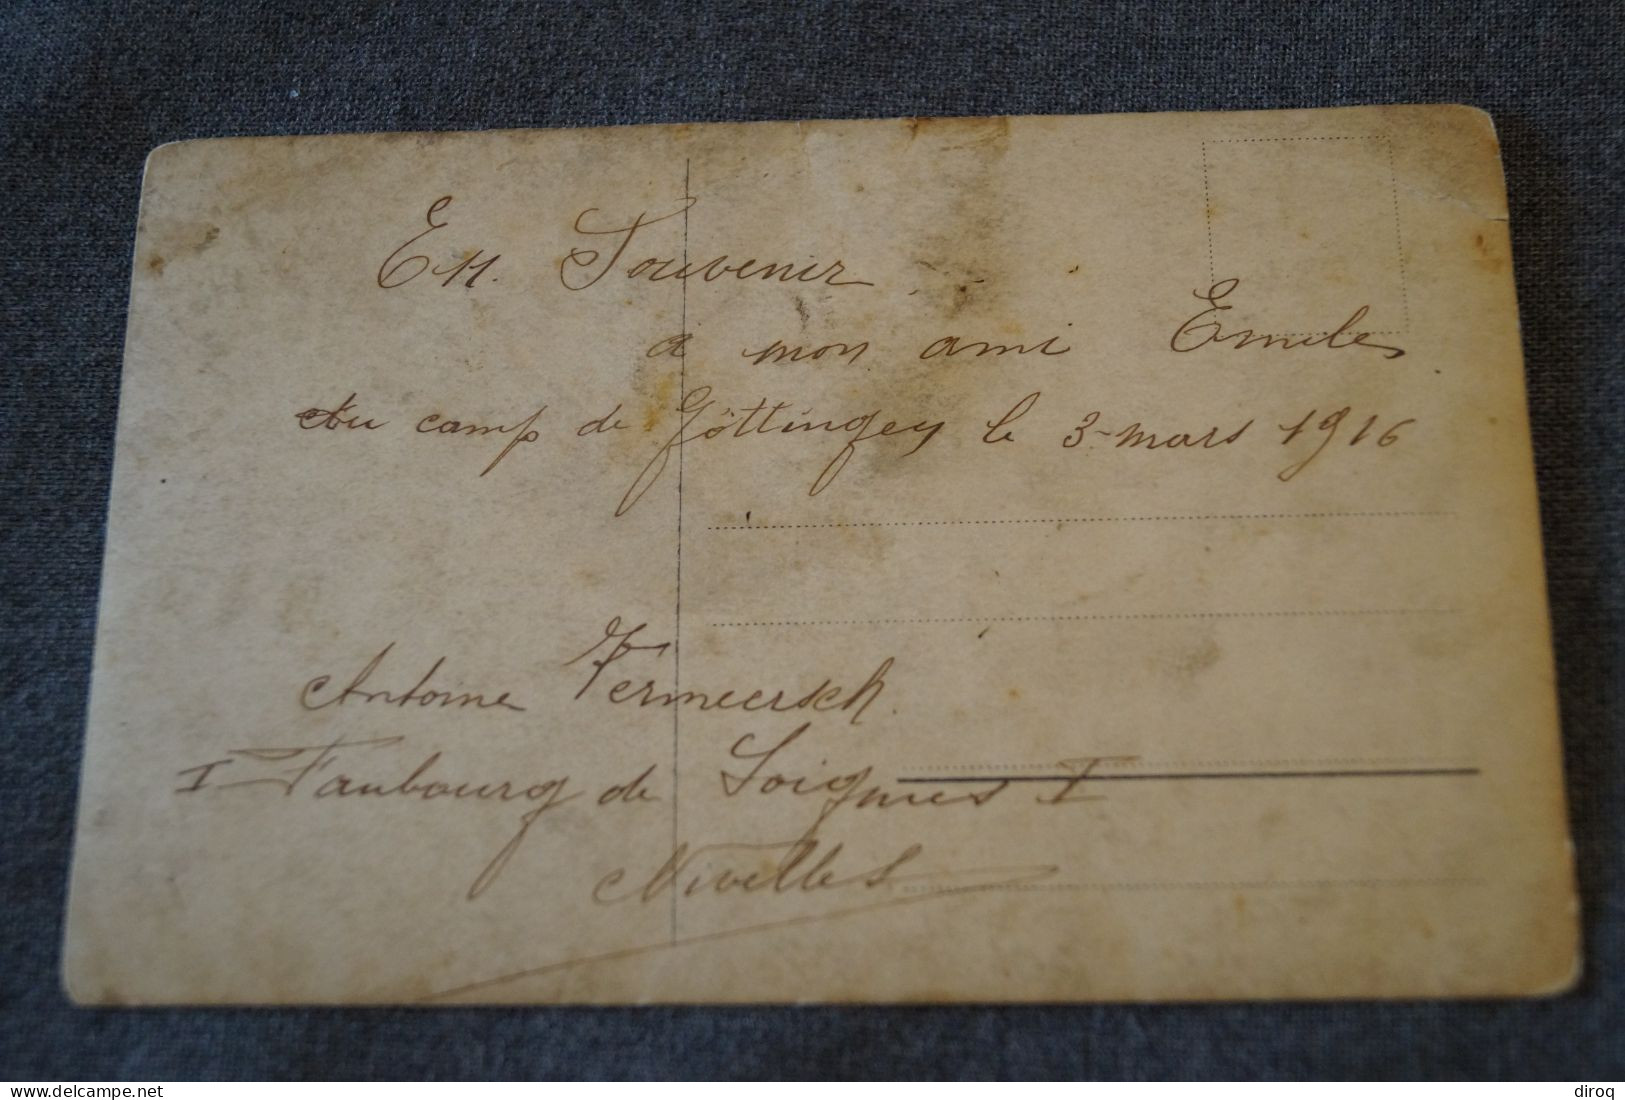 En Souvenir
a mon ami Emile
Au camp de Göttingen le 3-mars 1916
Antoine Vermeersch.
I Faubourg de Soignies I
Nivelles
www.delcampe.net
diroq